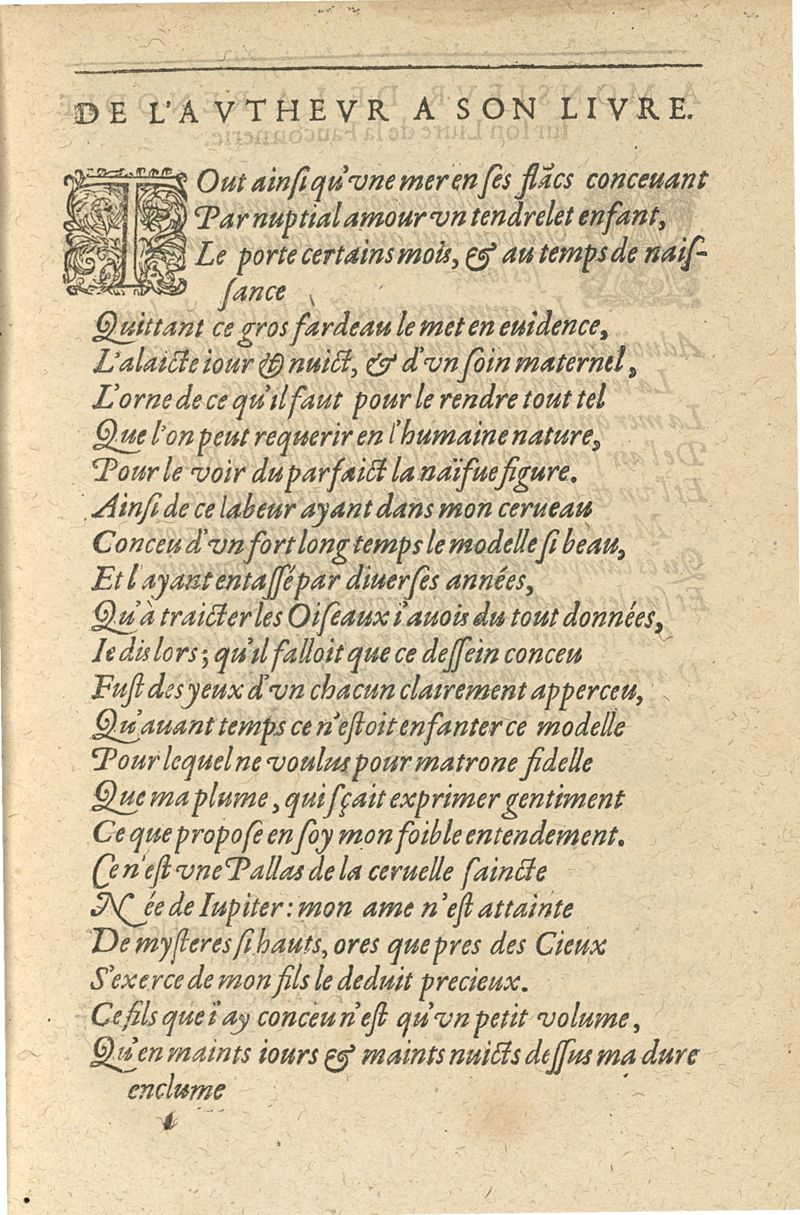 DE L'AVTHEVR A SON LIVRE.
TOut ainſi qu'vne mer en ſes flācs conceuant
Par nuptial amour vn tendrelet enfant,
Le porte certains mois, & au temps de naiſ-
ſance
Quittant ce gros fardeau le met en euidence,
L'alaicte iour & nuict, & d'vn ſoin maternel,
L'orne de ce qu'il faut pour le rendre tout tel
Que l'on peut requerir en l'humaine nature,
Pour le voir du parfaict la naïfue figure.
Ainſi de ce labeur ayant dans mon cerueau
Conceu d'vn fort long temps le modelle ſi beau,
Et l'ayant entaſſé par diuerſes années,
Qu'à traicter les Oiſeaux i'auois du tout données,
Ie dis lors; qu'il falloit que ce deſſein conceu
Fuſt des yeux d'vn chacun clairement apperceu,
Qu'auant temps ce n'eſtoit enfanter ce modelle
Pour lequel ne voulus pour matrone fidelle
Que ma plume, qui ſçait exprimer gentiment
Ce que propoſe en ſoy mon foible entendement.
Ce n'eſt vne Pallas de la ceruelle ſaincte
Née de Iupiter: mon ame n'eſt attainte
De myſteres ſi hauts, ores que pres des Cieux
S'exerce de mon fils le deduit precieux.
Ce fils que i'ay conceu n'eſt qu'vn petit volume,
Qu'en maints iours & maints nuicts deſſus ma dure
enclume